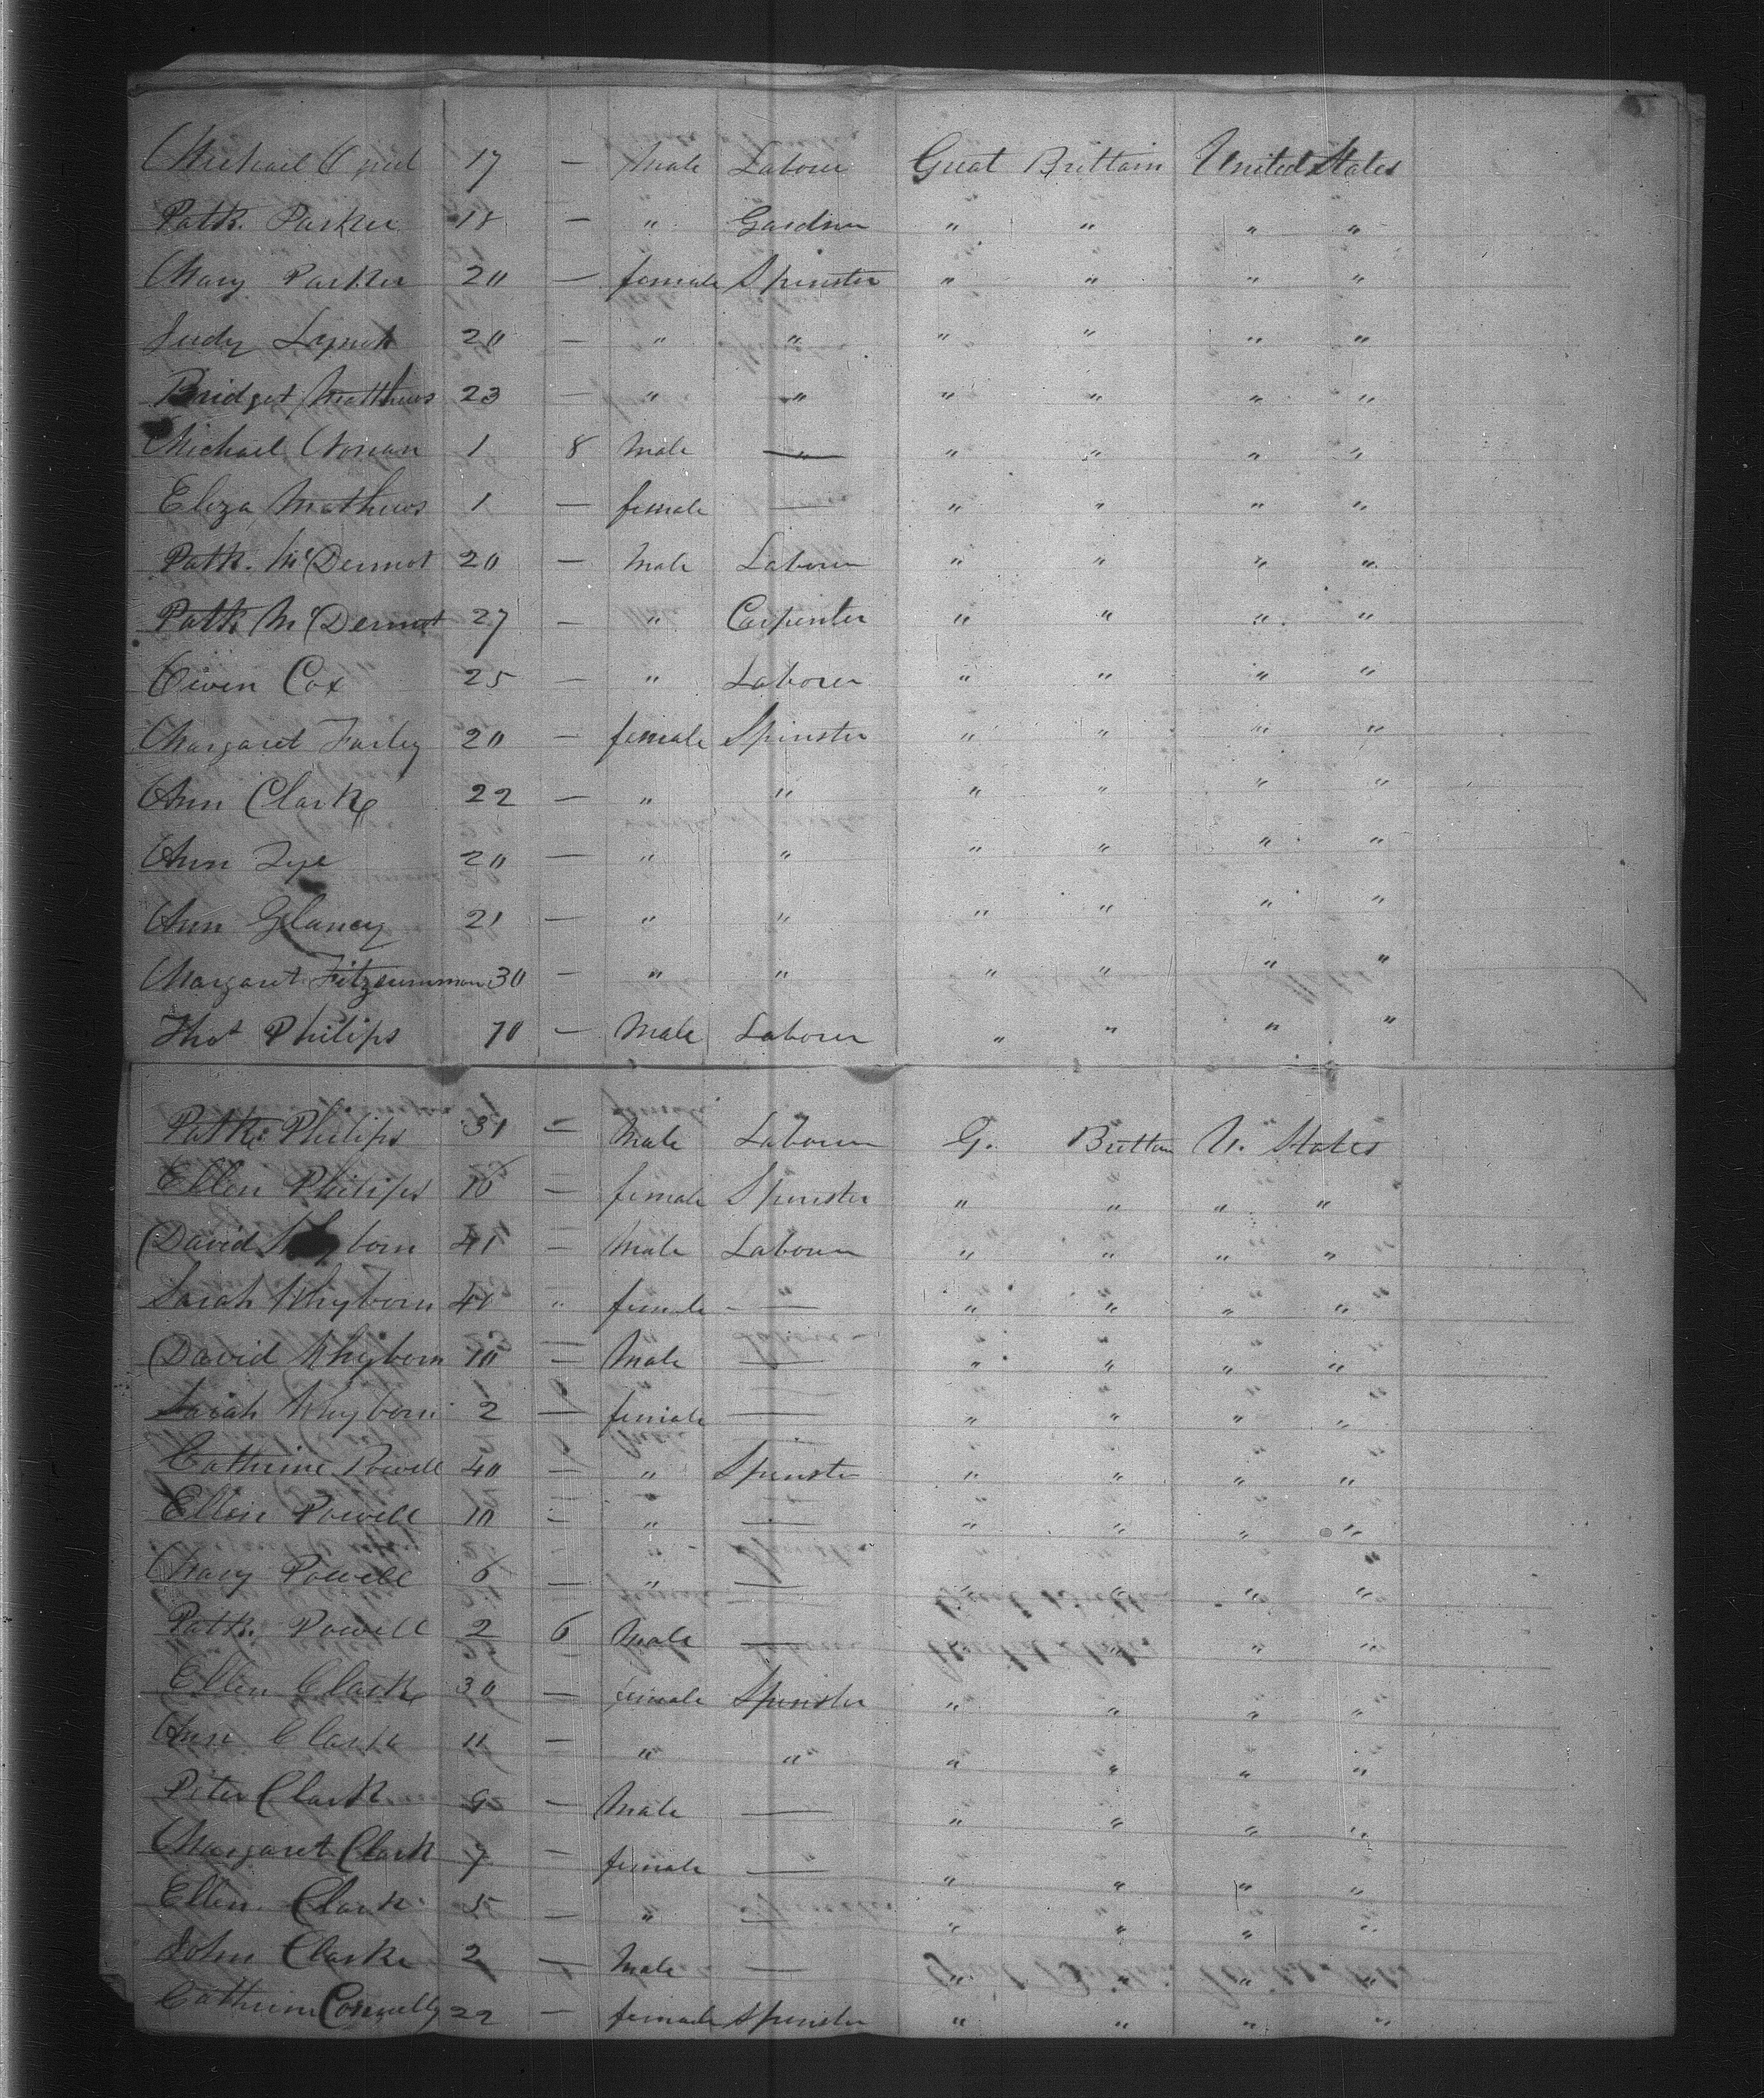 Michael 17 — Male Laborer Great Brittain United States
Patk. Parker 18 — " Gardner " " " "
Mary Parker 20 — female Spinster " " " "
Judy 20 — " " " " " "
Bridget Matthews 23 — " " " " " "
Michael 1 8 Male — " " " "
Eliza Mathews 1 — female — " " " "
Patk. McDermot 20 — Male Laborer " " " "
Patk. McDermot 27 — " Carpenter " " " "
Owen Cox 25 — " Laborer " " " "
Margaret Farley 20 — female Spinster " " " "
Ann Clarke 22 — " " " " " "
Ann 20 — " " " " " "
Ann Glancy 21 — " " " " " "
Margaret Fitzsummon 30 — " " " " " "
Thos Philips 70 — Male Laborer " " " "
Patk: Philips 31 — Male Laborer G. Brittan U. States
Ellen Philips — female Spinster " " " "
David 41 — Male Laborer " " " "
Sarah Whyborn 41 " female — " " " "
David Whyborn 10 — Male — " " " "
Sarah Whyborn 2 — female — " " " "
Cathrine Powell 40 — " Spinster " " " "
Ellen Powell 10 — " — " " " "
Mary Powell 6 — " — " " " "
Patk. Powell 2 6 Male — " " " "
Ellen Clarke 30 — female Spinster " " " "
Ann Clarke 11 — " " " " " "
Peter Clark 9 — Male — " " " "
Margaret Clark 7 — female — " " " "
Ellen Clark 5 — " — " " " "
John Clarke 2 — Male — " " " "
Cathrine Connelly 22 — female Spinster " " " "